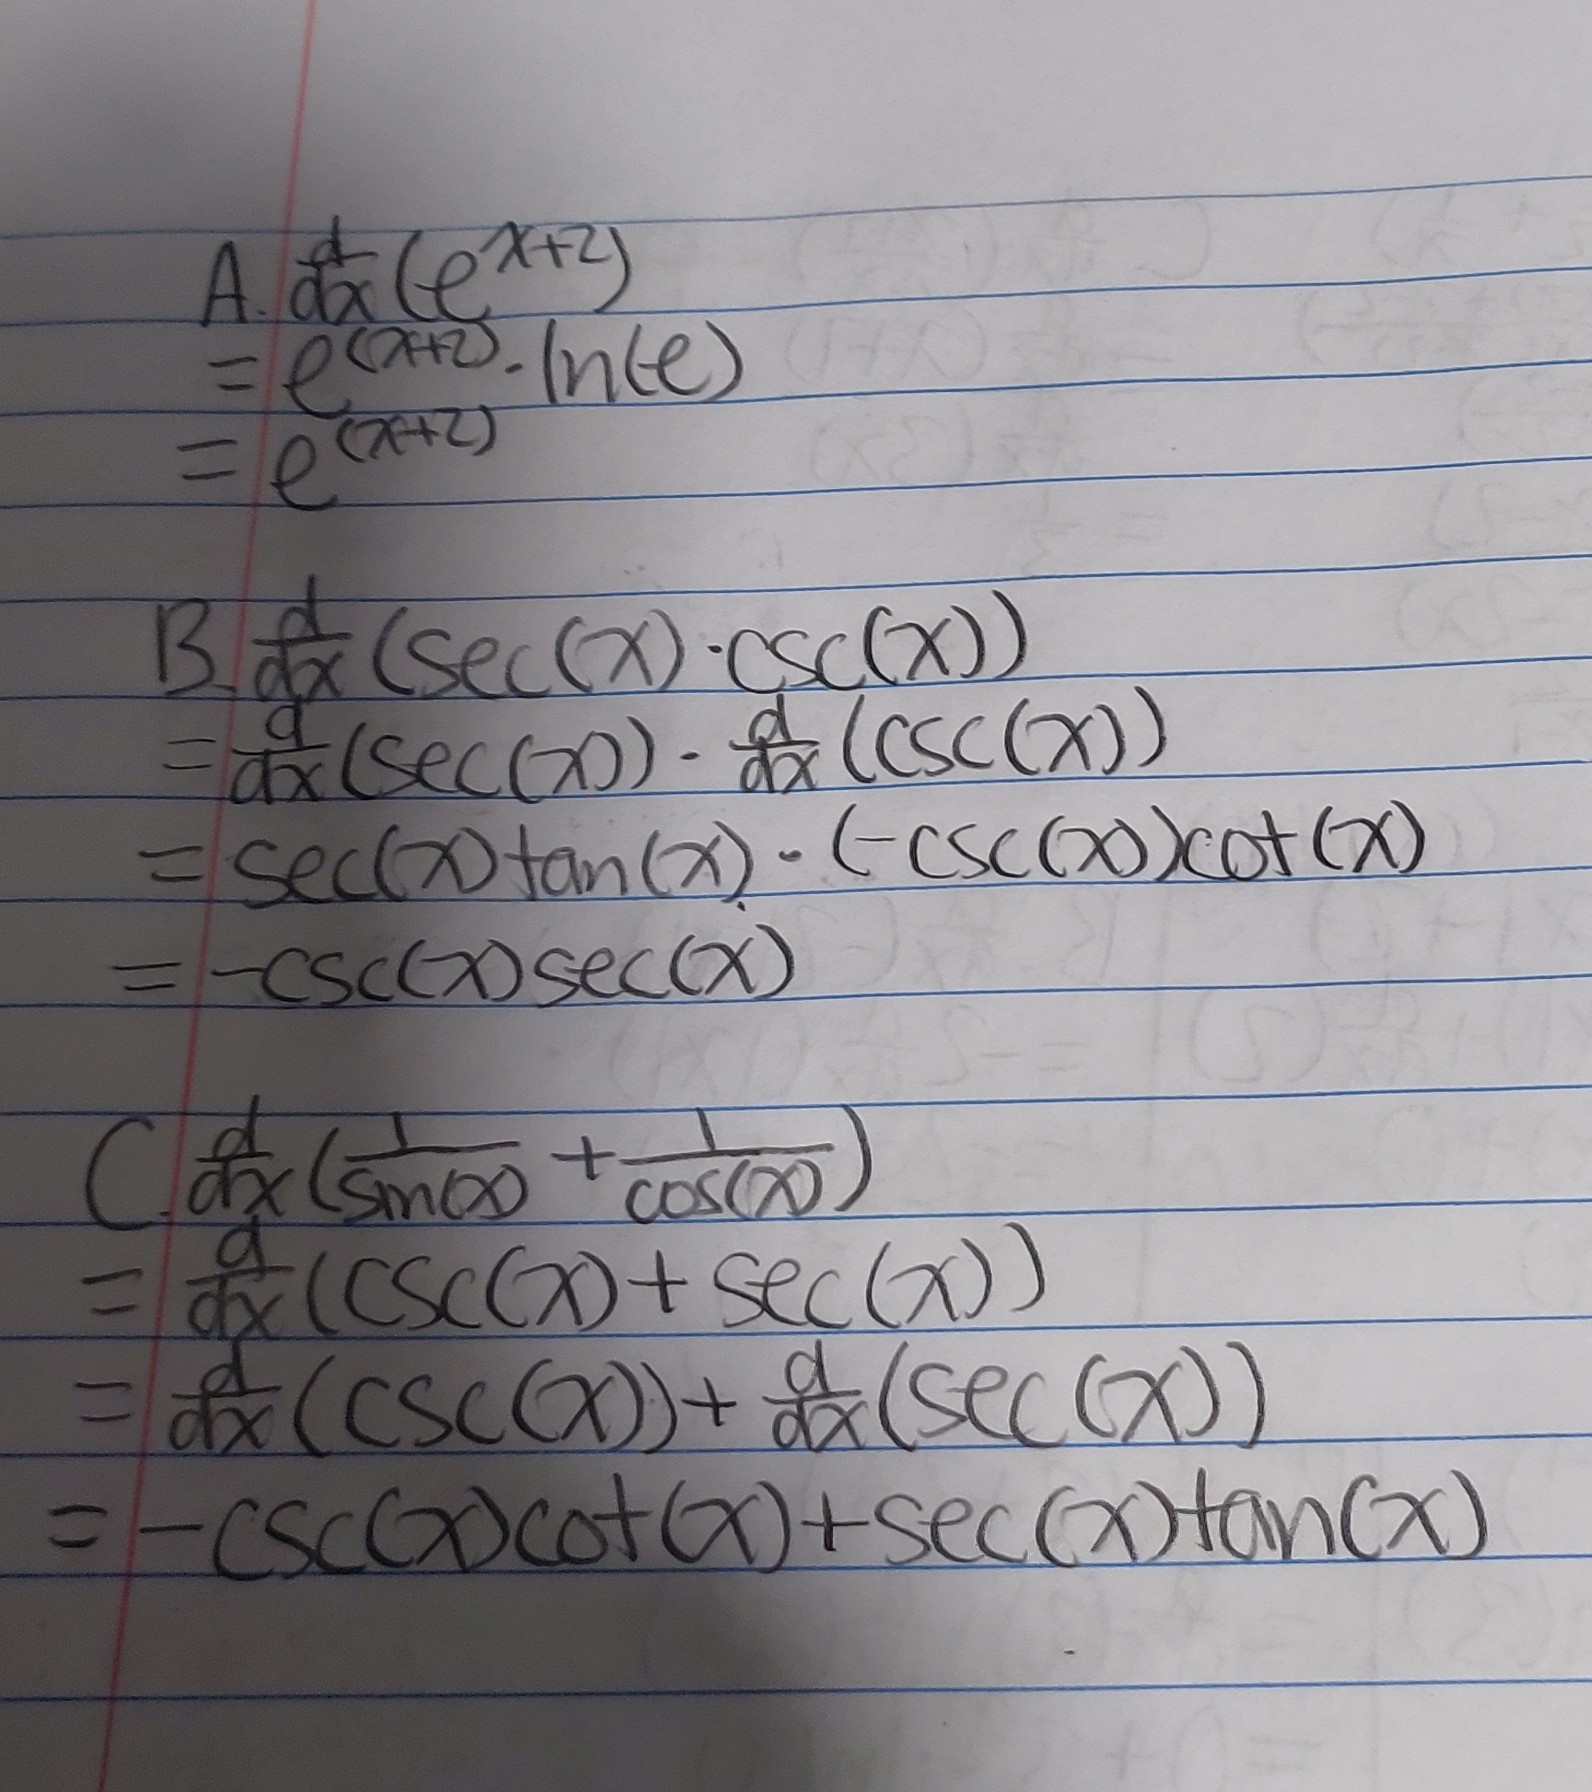 A. d/dx (e^x+2)
= e^(x+2) · ln(e)
= e^(x+2)
B. d/dx (sec(x) · csc(x))
= d/dx (sec(x)) · d/dx (csc(x))
= sec(x)tan(x) · (-csc(x))cot(x)
= -csc(x)sec(x)
C. d/dx (1/sin(x) + 1/cos(x))
= d/dx (csc(x) + sec(x))
= d/dx (csc(x)) + d/dx (sec(x))
= -csc(x)cot(x) + sec(x)tan(x)